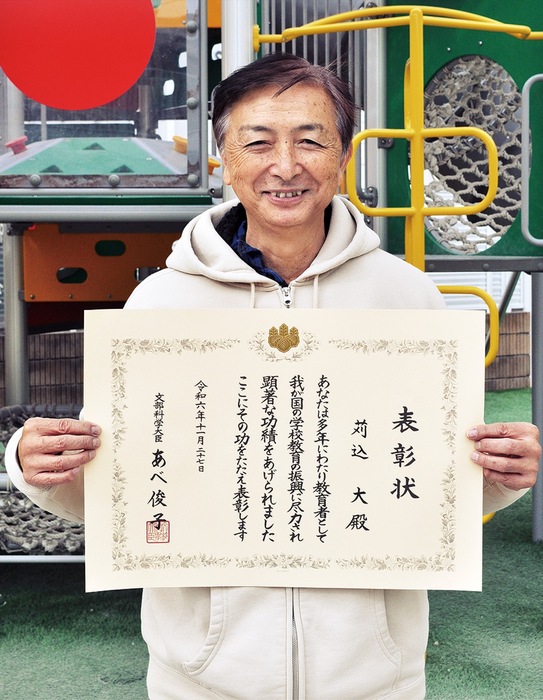 表彰状
苅込 大殿
あなたは多年にわたり教育者として
我が国の学校教育の振興に尽力され
顕著な功績をあげられました
ここにその功をたたえ表彰します
令和六年十一月二十七日
文部科学大臣 あべ俊子